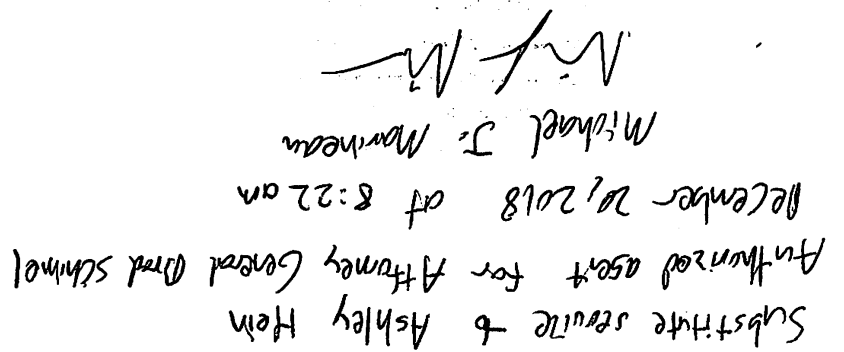 Substitute service to Ashley Hein
Authorized agent for Attorney General Brad Schimel
December 20, 2018 at 8:22 am
Michael J. Marcheau